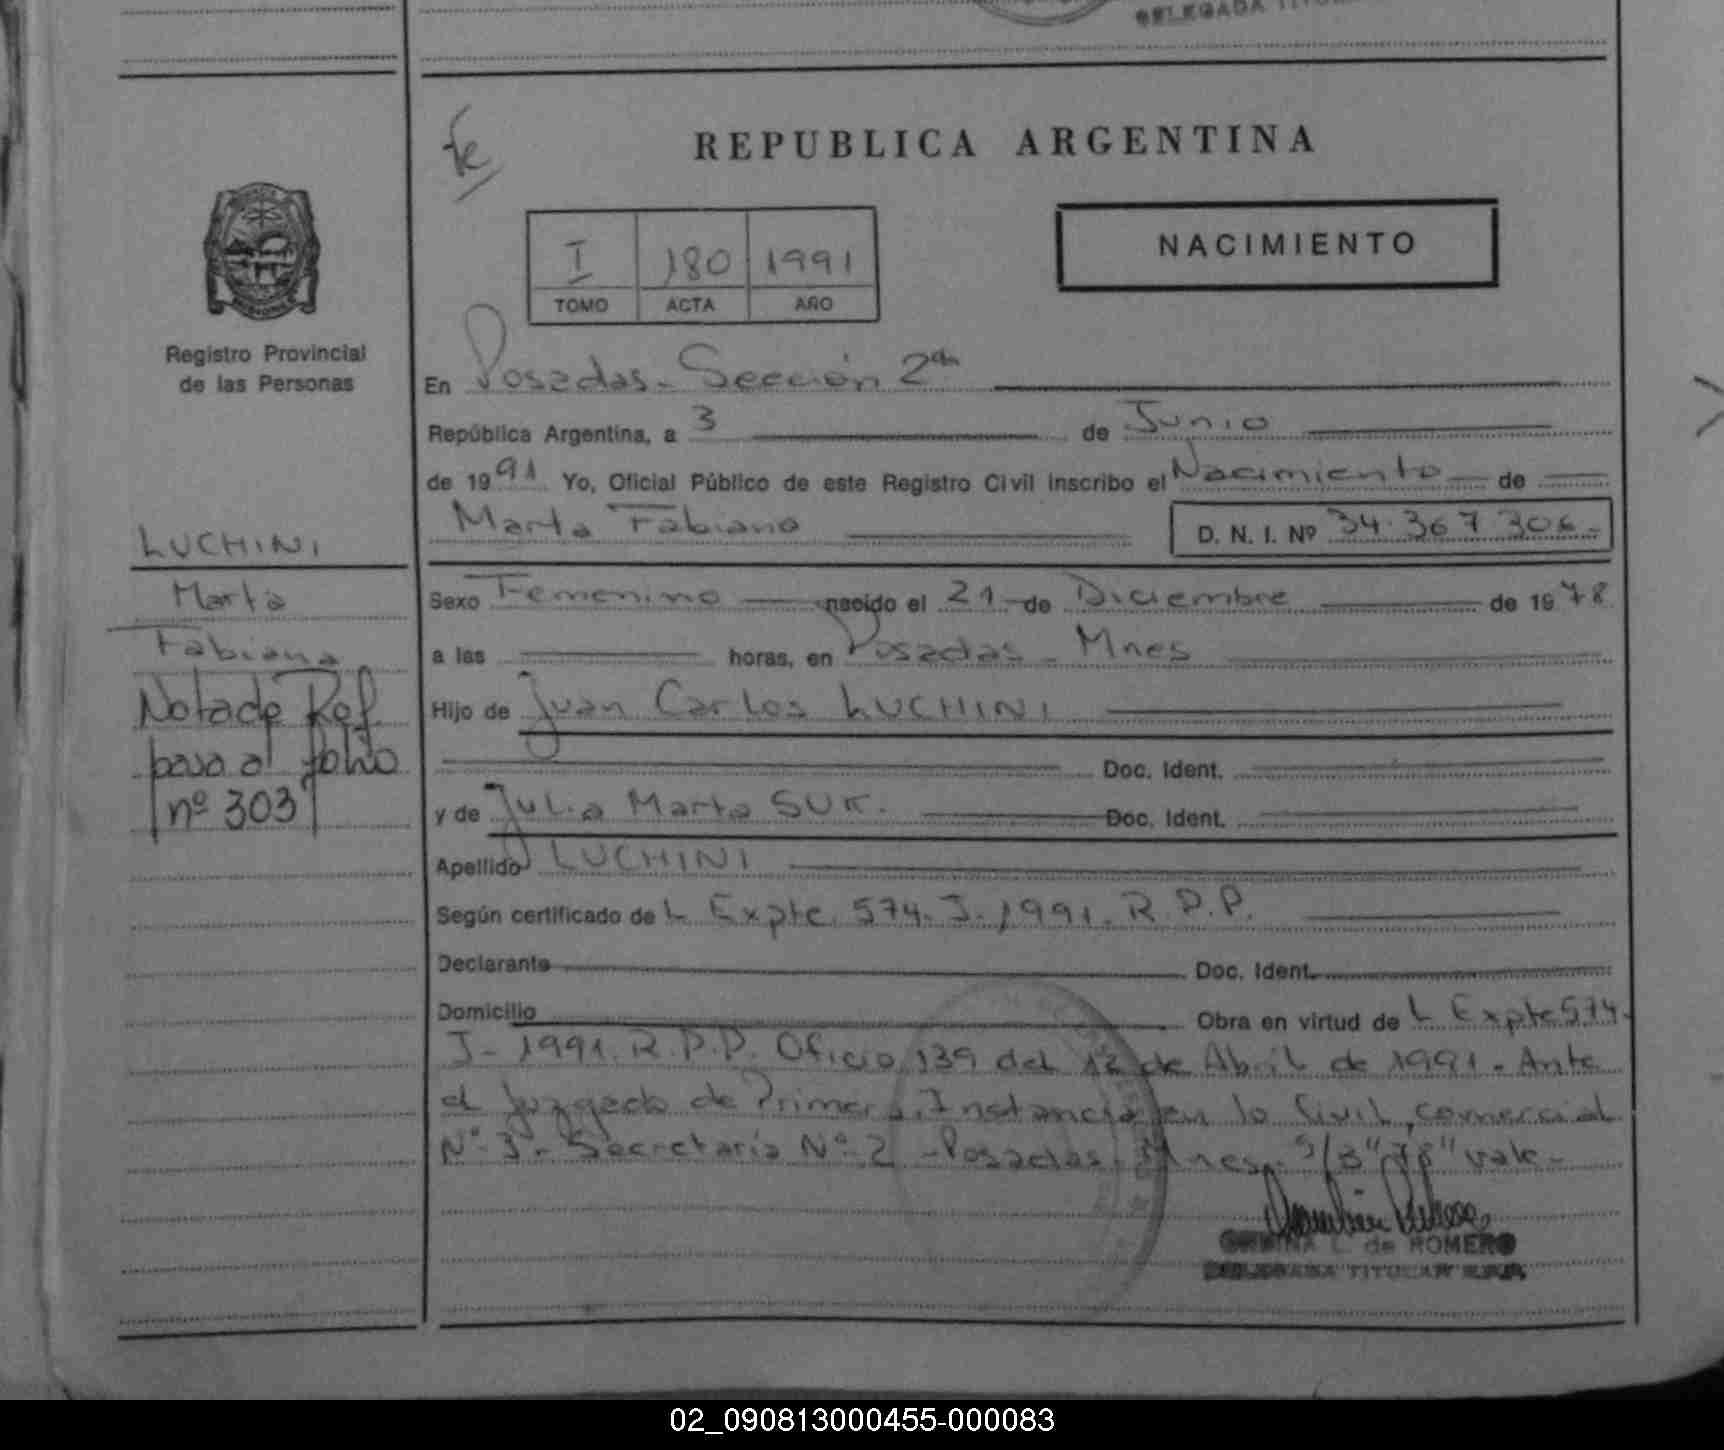 DELEGADA
REPUBLICA ARGENTINA
NACIMIENTO
I 180 1991
TOMO ACTA AÑO
Registro Provincial
de las Personas
En Posadas - Sección 2da
República Argentina, a 3 de Junio
de 1991 Yo, Oficial Público de este Registro Civil inscribo el Nacimiento de
Marta Fabiana D. N. I. Nº 34.367.306.-
LUCHINI
Marta
Fabiana
Nota de Ref.
pasa al folio
nº 303
Sexo Femenino nacido el 21 de Diciembre de 1978
a las horas, en Posadas - Mnes
Hijo de Juan Carlos LUCHINI
Doc. Ident.
y de Julia Marta SUK. Doc. Ident.
Apellido LUCHINI
Según certificado de L Expte 574. J. 1991. R.P.P.
Declarante Doc. Ident.
Domicilio Obra en virtud de L Expte 574-
J- 1991. R.P.P. Oficio 139 del 12 de Abril de 1991. Ante
el Juzgado de Primera Instancia en lo Civil, comercial
Nº 3- Secretaría Nº 2 - Posadas - Mnes. S/B "78" vale-
L. de ROMERO
DELEGADA TITULAR R.P.P.
02_090813000455-000083